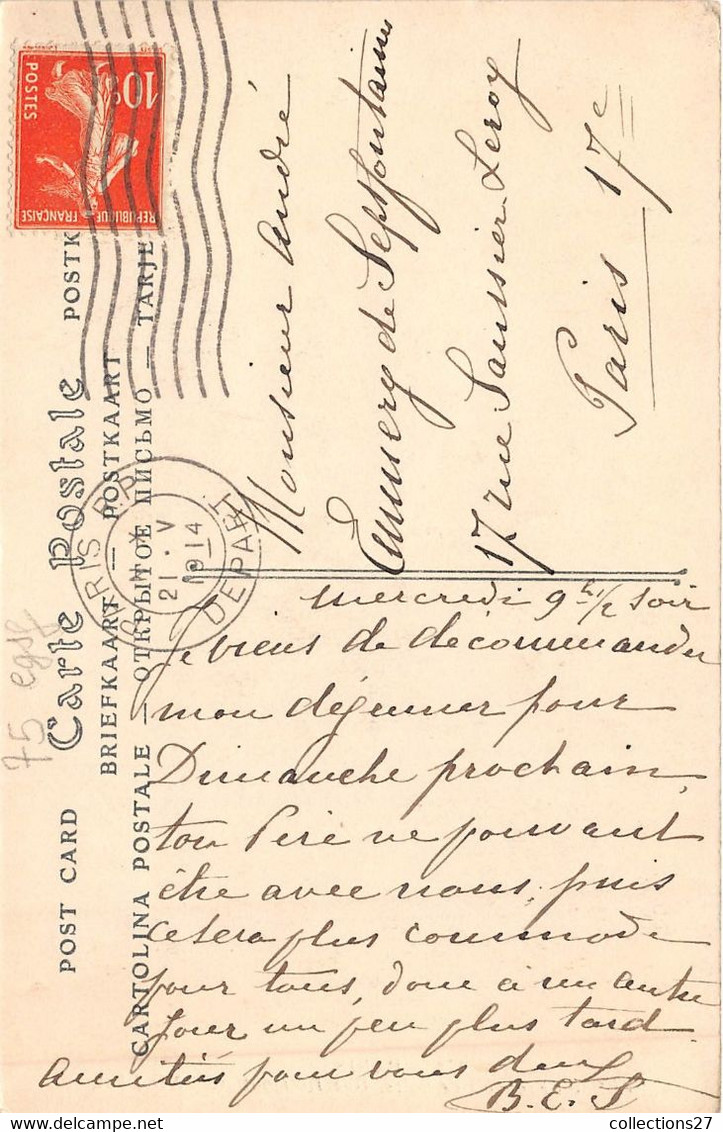 POST CARD Carte Postale POSTK
BRIEFKAART — POSTKAART
CARTOLINA POSTALE — ОТКРЫТОЕ ПИСЬМО — TARJE
10c
POSTES
REPUBLIQUE FRANÇAISE
PARIS R.P.
21 . V
1914
DEPART
Monsieur André
Emmery de Septfontaines
17 rue Saussier Leroy
Paris 17e
75 egsl
mercredi 9h 1/2 soir
Je viens de décommander
mon déjeuner pour
Dimanche prochain,
ton Père ne pouvant
être avec nous, puis
ce sera plus commode
pour tous, donc à un autre
jour un peu plus tard
Amitiés pour vous deux
B. E. S
collections27